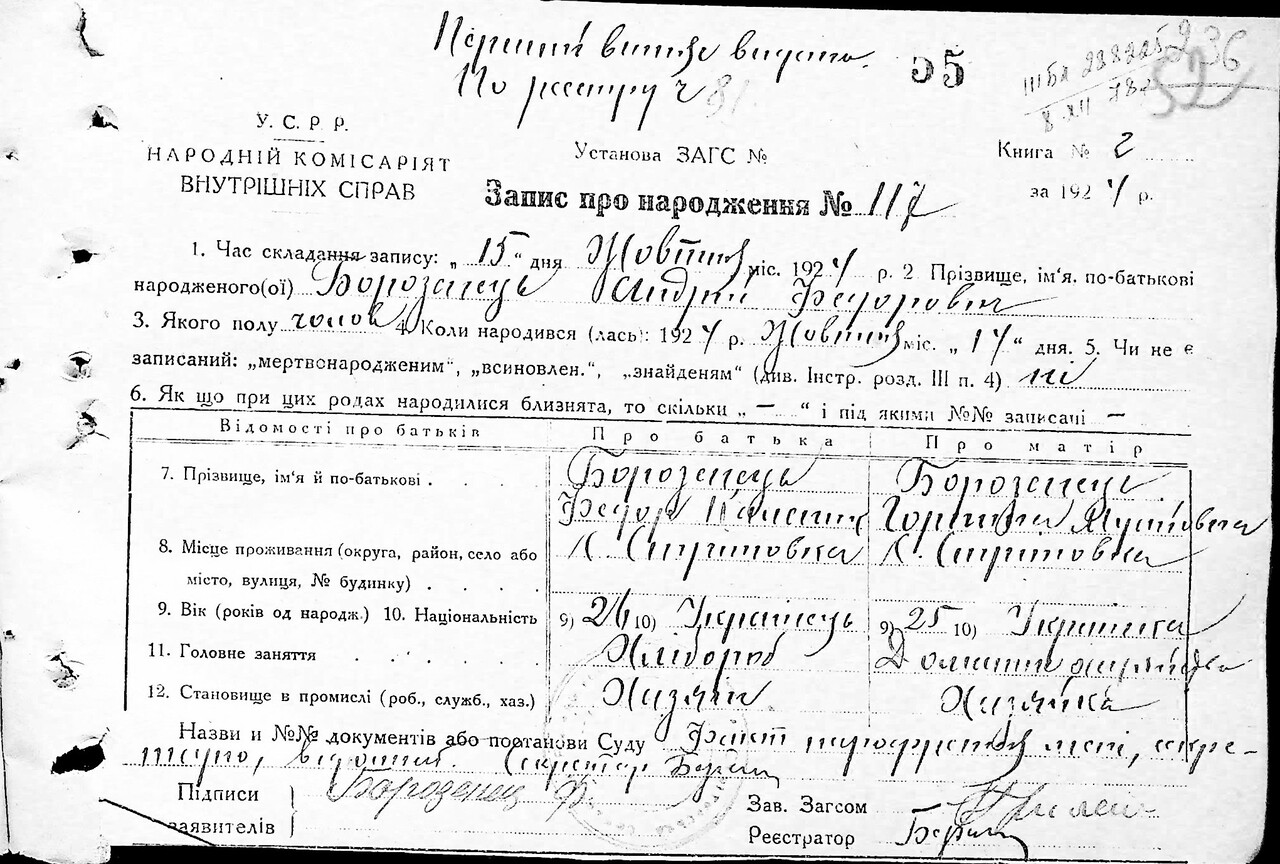 Перший витяг видано.
По реєстру ч 81
55
236
ІІІБЛ 228225
8 XII 78
52
У. С. Р. Р.
НАРОДНІЙ КОМІСАРІЯТ
ВНУТРІШНІХ СПРАВ
Установа ЗАГС №
Книга № 2
за 1924 р.
Запис про народження № 117
1. Час складання запису: „ 15 “ дня Жовтня міс. 1924 р. 2 Прізвище, ім'я. по-батькові
народженого(ої) Борозенець Андрій Федорович
3. Якого полу чолов 4 Коли народився (лась): 1924 р. Жовтня міс. „ 14 “ дня. 5. Чи не є
записаний: „мертвонародженим“, „всиновлен.“, „знайденям“ (див. Інстр. розд. III п. 4) ні
6. Як що при цих родах народилися близнята, то скільки „ — “ і під якими №№ записані —
Відомості про батьків Про батька Про матір
7. Прізвище, ім'я й по-батькові Борозенець Борозенець
Федор Горпина
8. Місце проживання (округа, район, село або
місто, вулиця, № будинку)
9. Вік (років од народж.) 10. Національність 9) 26 10) Українець 9) 25 10) Українка
11. Головне заняття Хлібороб Домашня
12. Становище в промислі (роб., служб., хаз.) Хазяїн Хазяйка
Назви и №№ документів або постанови Суду Факт народження мені, секре-
тарю, відомий. Секретар
Підписи
заявителів
Борозенец Ф
Зав. Загсом
Реєстратор